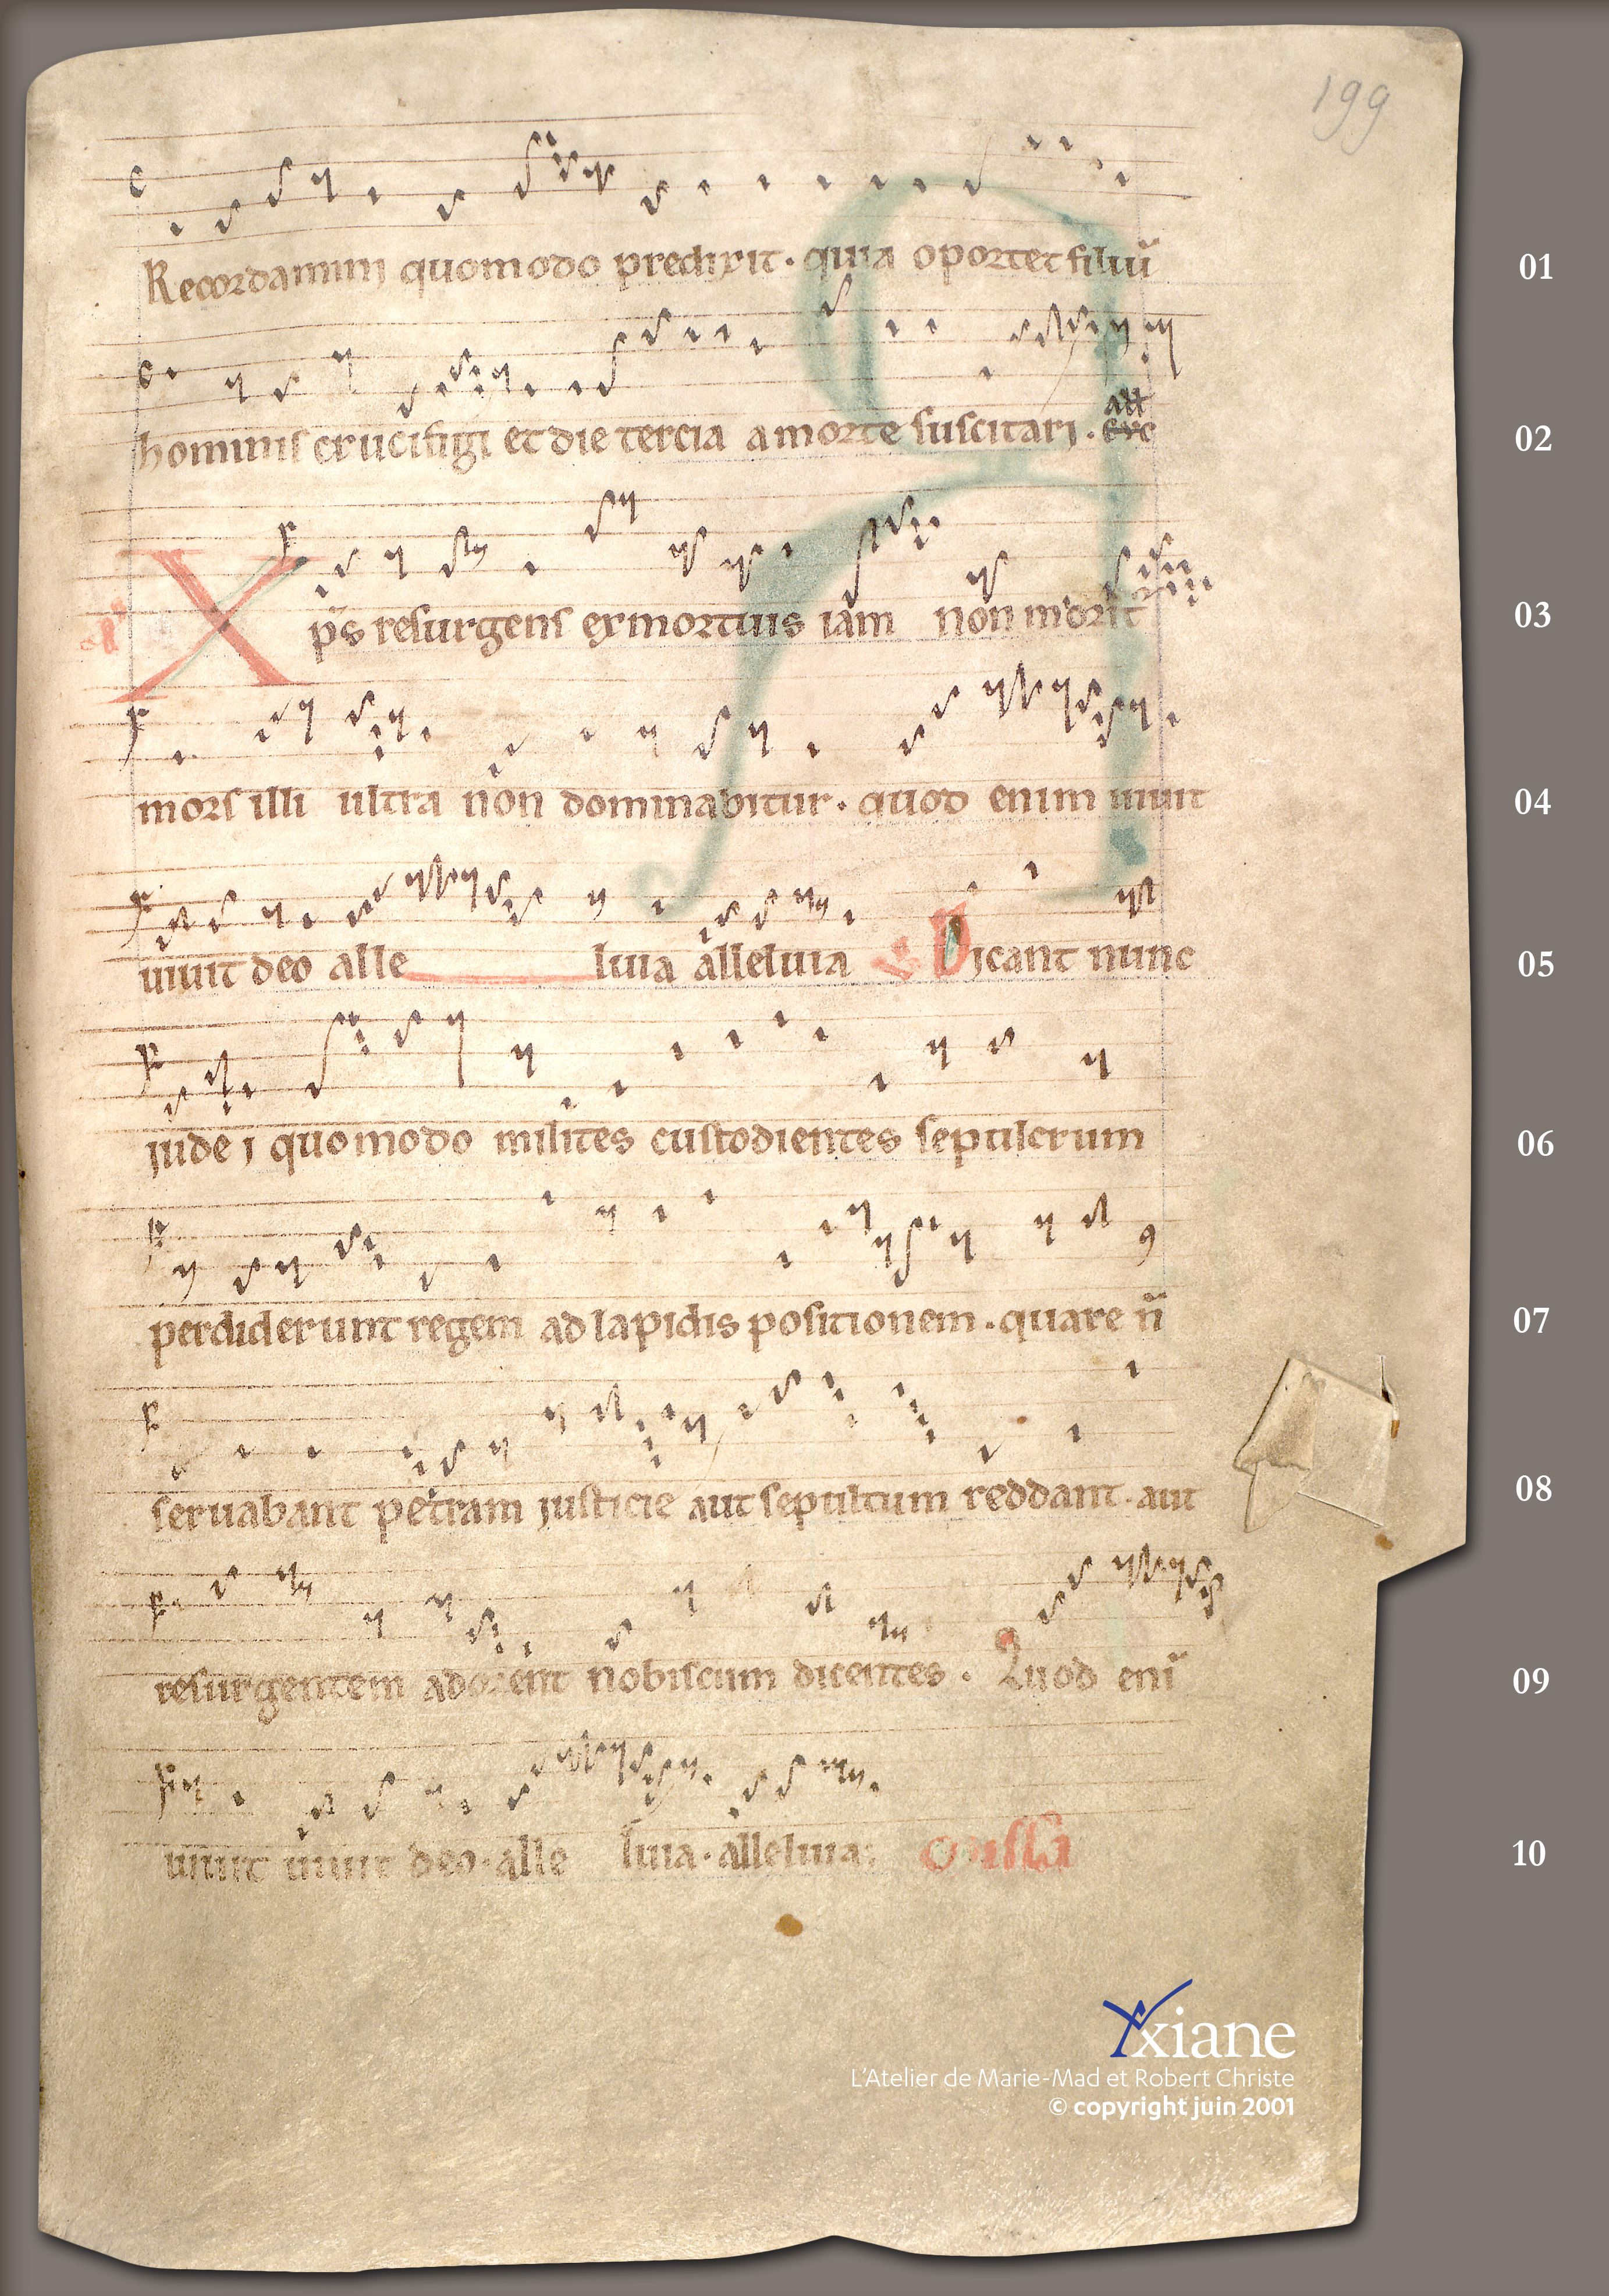 199
Recordamini quomodo predixit. quia oportet filiū 01
all
hominis crucifigi et die tercia a morte suscitari. exc 02
xp̄s resurgens ex mortuis iam non morit 03
mors illi ultra non dominabitur. quod enim uiuit 04
uiuit deo alle luia alleluia Dicant nunc 05
iudei quomodo milites custodientes sepulcrum 06
perdiderunt regem ad lapidis positionem. quare n̄ 07
seruabant petram iusticie aut sepultum reddant. aut 08
resurgentem adorent nobiscum dicentes. Quod enī 09
uiuit uiuit deo. alle luia. alleluia 10
Yxiane
L'Atelier de Marie-Mad et Robert Christe
© copyright juin 2001